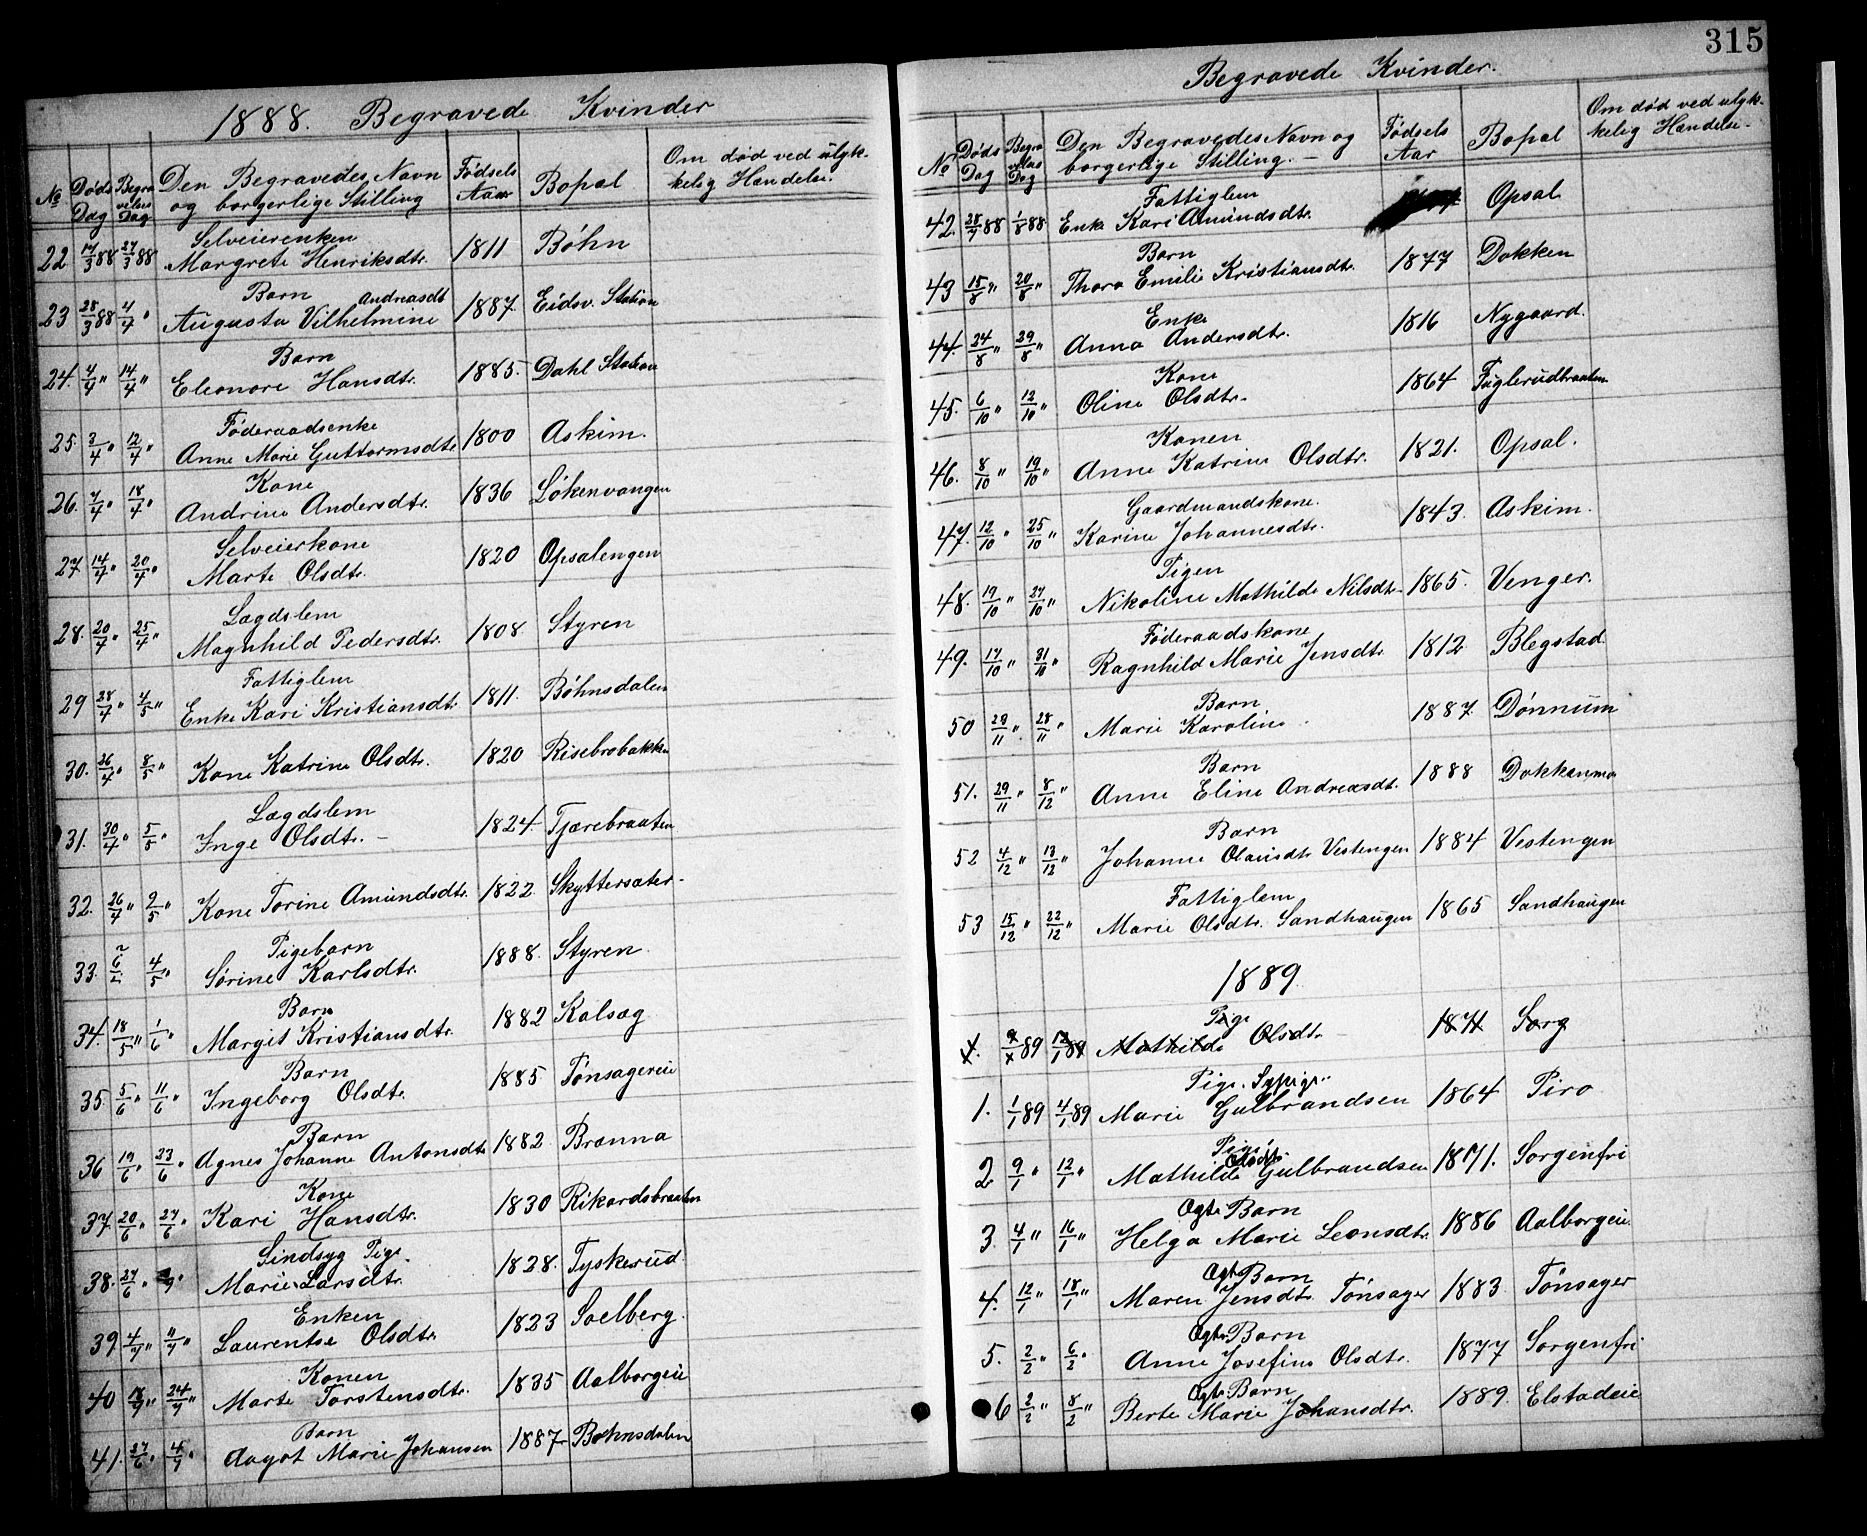 1888. Begravede Kvinder
No Døds Dag Begravelses Dag Den Begravedes Navn og borgerlige Stilling Fødsels Aar Bopal Om død ved ulyk-kelig Handelse.
22 17/3 88 27/3 88 Selveierenken Margrete Henriksdtr. 1811 Bøhn
23 28/3 88 4/4 " Barn Augusta Vilhelmine Andreasdt 1887. Eidsv. Station
24. 4/4 " 14/4 " Barn Eleonore Hansdtr. 1885. Dahl Station
25. 3/4 " 12/4 " Føderaadsenke Anne Marie Guttormsdtr 1800 Askim.
26. 7/4 " 18/4 " Kone Andrine Andersdtr. 1836 Løkenvangen
27 14/4 " 20/4 " Selveierkone Marte Olsdtr. 1820 Opsalengen
28. 20/4 " 25/4 " Lægdslem Magnhild Pedersdtr. 1808 Styren
29 28/4 " 4/5 " Fattiglem Enke Kari Kristiansdtr 1811. Bøhnsdalen
30. 26/4 " 8/5 " Kone Katrine Olsdtr. 1820 Risebrobakken
31. 30/4 " 5/5 " Lægdslem Inge Olsdtr. - 1824. Tjærebraaten
32. 26/4 " 2/5 " Kone Torine Amundsdtr. 1822. Skyttersæter-
33. 4/5 " Pigebarn Sørine Karlsdtr. 1888. Styren.
34. 18/5 " 1/6 " Barn Margit Kristiansdtr. 1882 Kalsæg
35. 5/6 " 11/6 " Barn Ingeborg Olsdtr. 1885 Tønsagereie
36 19/6 " 23/6 " Barn Agnes Johanne Antonsdtr 1882. Brænna
37. 20/6 " 27/6 " Kone Kari Hansdtr. 1830 Rikardsbraaten
38. 27/6 " Sindsyg Pige. Marie Larsdtr. 1828. Tyskerud.
39 4/7 " 11/7 " Enken Laurentse Olsdtr. 1823 Soelberg.
40 18/7 " 24/7 " Konen Marte Torstensdtr. 1835 Aalborgeie
41. 27/6 " 4/7 " Barn Aagot Marie Johansen 1887 Bøhnsdalen
315
Begravede Kvinder.
No Døds Dag Begravelses Dag Den Begravedes Navn og borgerlige Stilling. - Fødsels Aar Bopal Om død ved ulyk-kelig Hændelse-
42. 28/7 88 1/8 88 Fattiglem Enke Kari Amundsdtr. Opsal
43 15/8 " 20/8 " Barn Thora Emilie Kristiansdtr. 1877 Dokken
44. 24/8 " 29/8 " Enke Anna Andersdtr. 1816 Nygaard.
45. 6/10 " 12/10 " Kone Oline Olsdtr. 1864 Fuglerudbraaten
46. 8/10 " 19/10 " Konen Anne Katrine Olsdtr. 1821. Opsal.
47. 12/10 " 25/10 " Gaardmandskone. Karine Johannesdtr. 1843. Askim.
48. 19/10 " 27/10 " Pigen Nikoline Mathilde Nilsdtr. 1865. Venger.
49. 17/10 " 31/10 " Føderaadskone Ragnhild Marie Jensdtr 1812 Blegstad
50 29/11 " 28/11 " Barn Marie Karoline 1887. Dønnum
51. 29/11 " 8/12 " Barn Anne Eline Andreasdt. 1888 Dokkenmo
52 4/12 " 13/12 " Barn Johanne Olausdtr Vestengen 1884 Vestengen
53 15/12 " 22/12 " Fattiglem Marie Olsdtr. Sandhaugen 1865 Sandhaugen
1889
89 12/1 89 Pige Mathilde Olsdtr. 1871 Sorg
1. 1/1 89 4/1 89 Pige. Sypige. Marie Gulbrandsen 1864 Piro
2 9/1 " 12/1 " Pige Mathilde Olsdtr Gulbrandsen 1871. Sorgenfri
3. 4/1 " 16/1 " Ægte Barn Helga Marie Leonsdtr. 1886 Aalborgeie.
4. 12/1 " 18/1 " Ægte Barn Maren Jensdtr. Tønsager 1883 Tønsager
5. 2/2 " 6/2 " Ægte Barn Anne Josefine Olsdtr. 1877 Sorgenfri
6 2/2 " 8/2 " Ægte Barn Berte Marie Johansdtr. 1889. Elstadeie